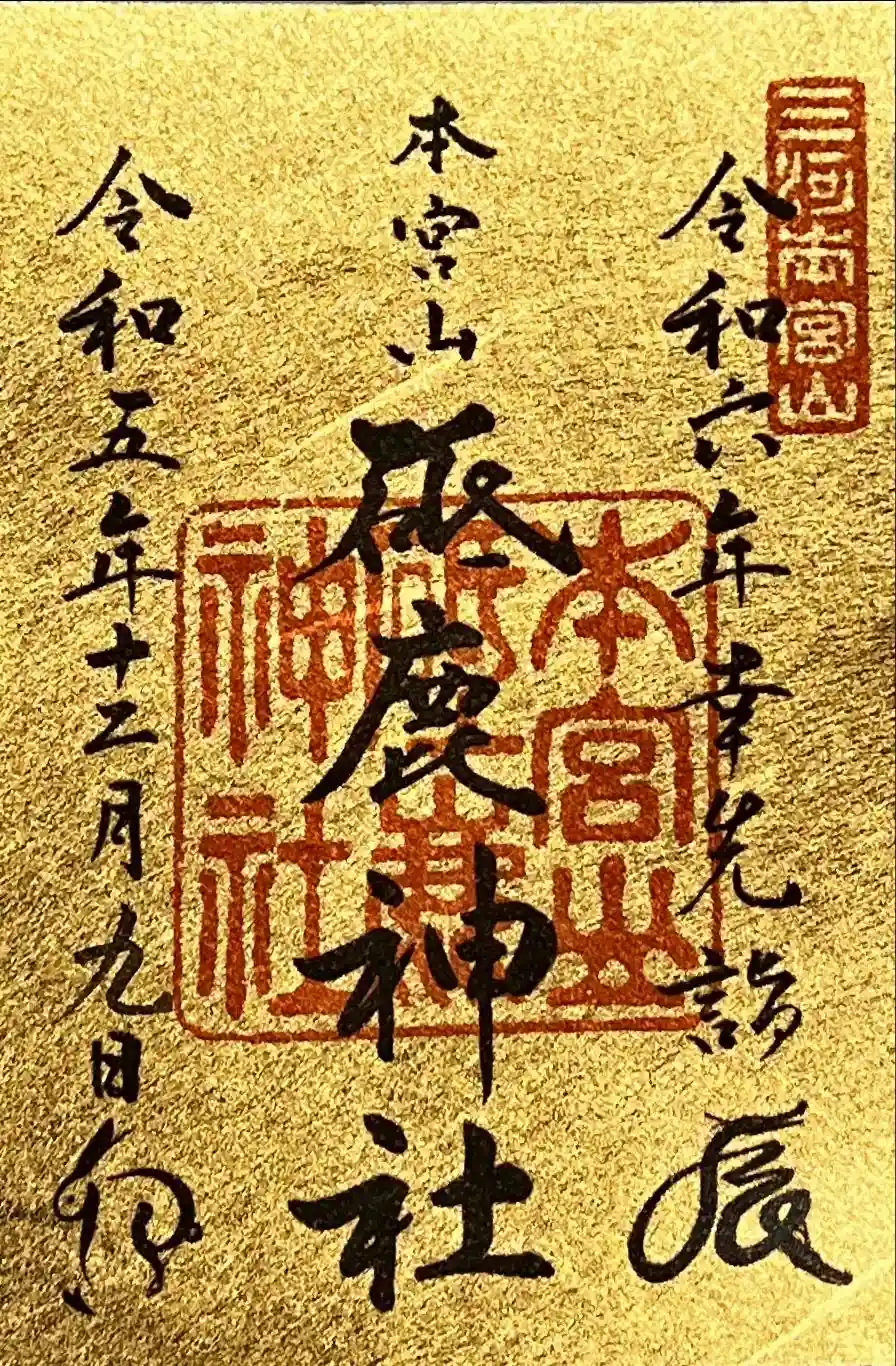 三河本宮山
令和六年幸先詣 辰
本宮山
砥鹿神社
本宮山
砥鹿
神社
令和五年十二月九日 卯